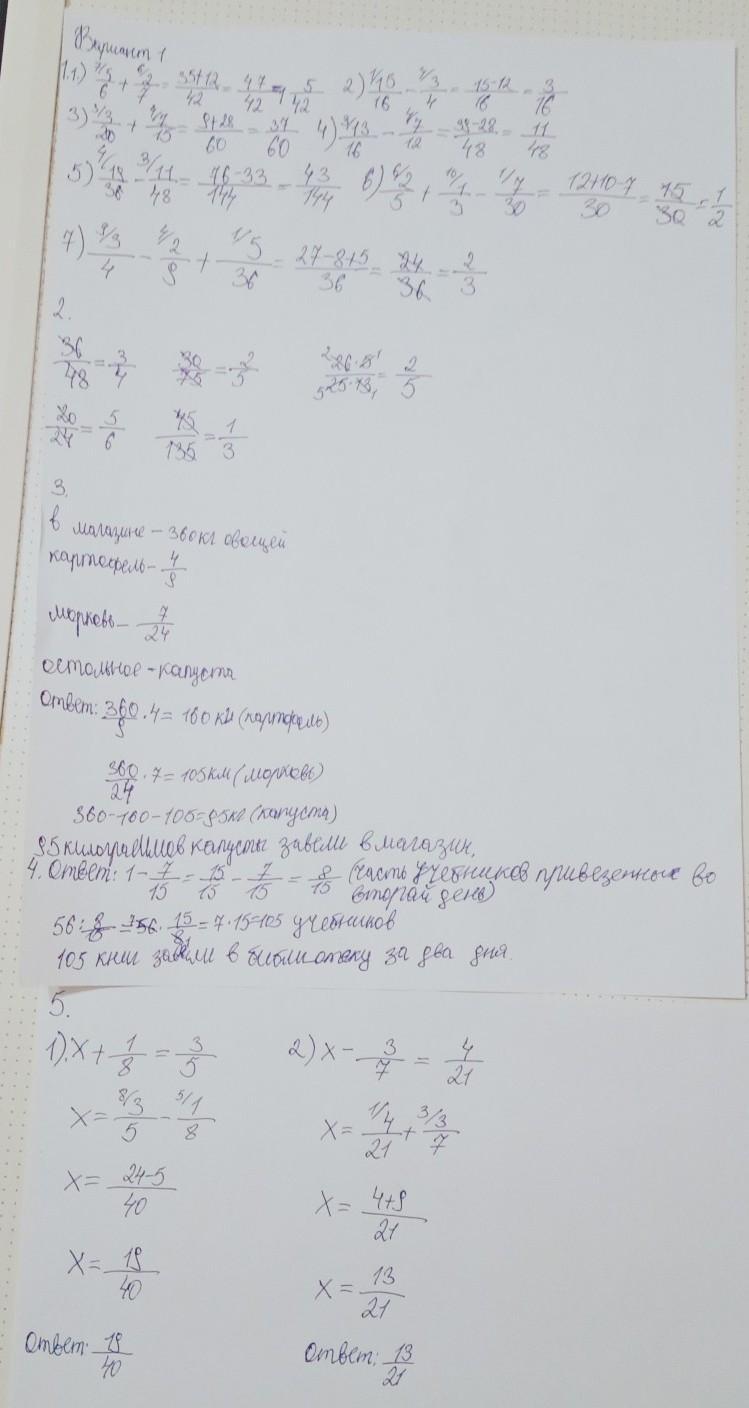 Вариант 1
1.1) 7/5/6 + 6/2/7 = 35+12/42 = 47/42 = 1 5/42 2) 1/15/16 - 4/3/4 = 15-12/16 = 3/16
3) 3/3/20 + 4/7/15 = 9+28/60 = 37/60 4) 3/13/16 - 4/7/12 = 39-28/48 = 11/48
5) 4/19/36 - 3/11/48 = 76-33/144 = 43/144 6) 6/2/5 + 10/1/3 - 1/7/30 = 12+10-7/30 = 15/30 = 1/2
7) 9/3/4 - 4/2/9 + 1/5/36 = 27-8+5/36 = 24/36 = 2/3
2.
36/48 = 3/4 30/75 = 2/5 26·5/25·13 = 2/5
20/24 = 5/6 45/135 = 1/3
3.
в магазине - 360кг овощей
картофель - 4/9
морковь - 7/24
остольное - капуста
Ответ: 360/9 · 4 = 160 км (картофель)
360/24 · 7 = 105км (морковь)
360-160-105=95кг (капуста)
95 килограммов капусты завели в магазин.
4. Ответ: 1 - 7/15 = 15/15 - 7/15 = 8/15 (часть учебников привезенных во
второй день)
56 : 8/15 = 56 · 15/8 = 7·15=105 учебников
105 книг завели в библиотеку за два дня.
5.
1). x + 1/8 = 3/5 2) x - 3/7 = 4/21
x = 8/3/5 - 5/1/8 x = 1/4/21 + 3/3/7
x = 24-5/40 x = 4+9/21
x = 19/40 x = 13/21
Ответ: 19/40 Ответ: 13/21